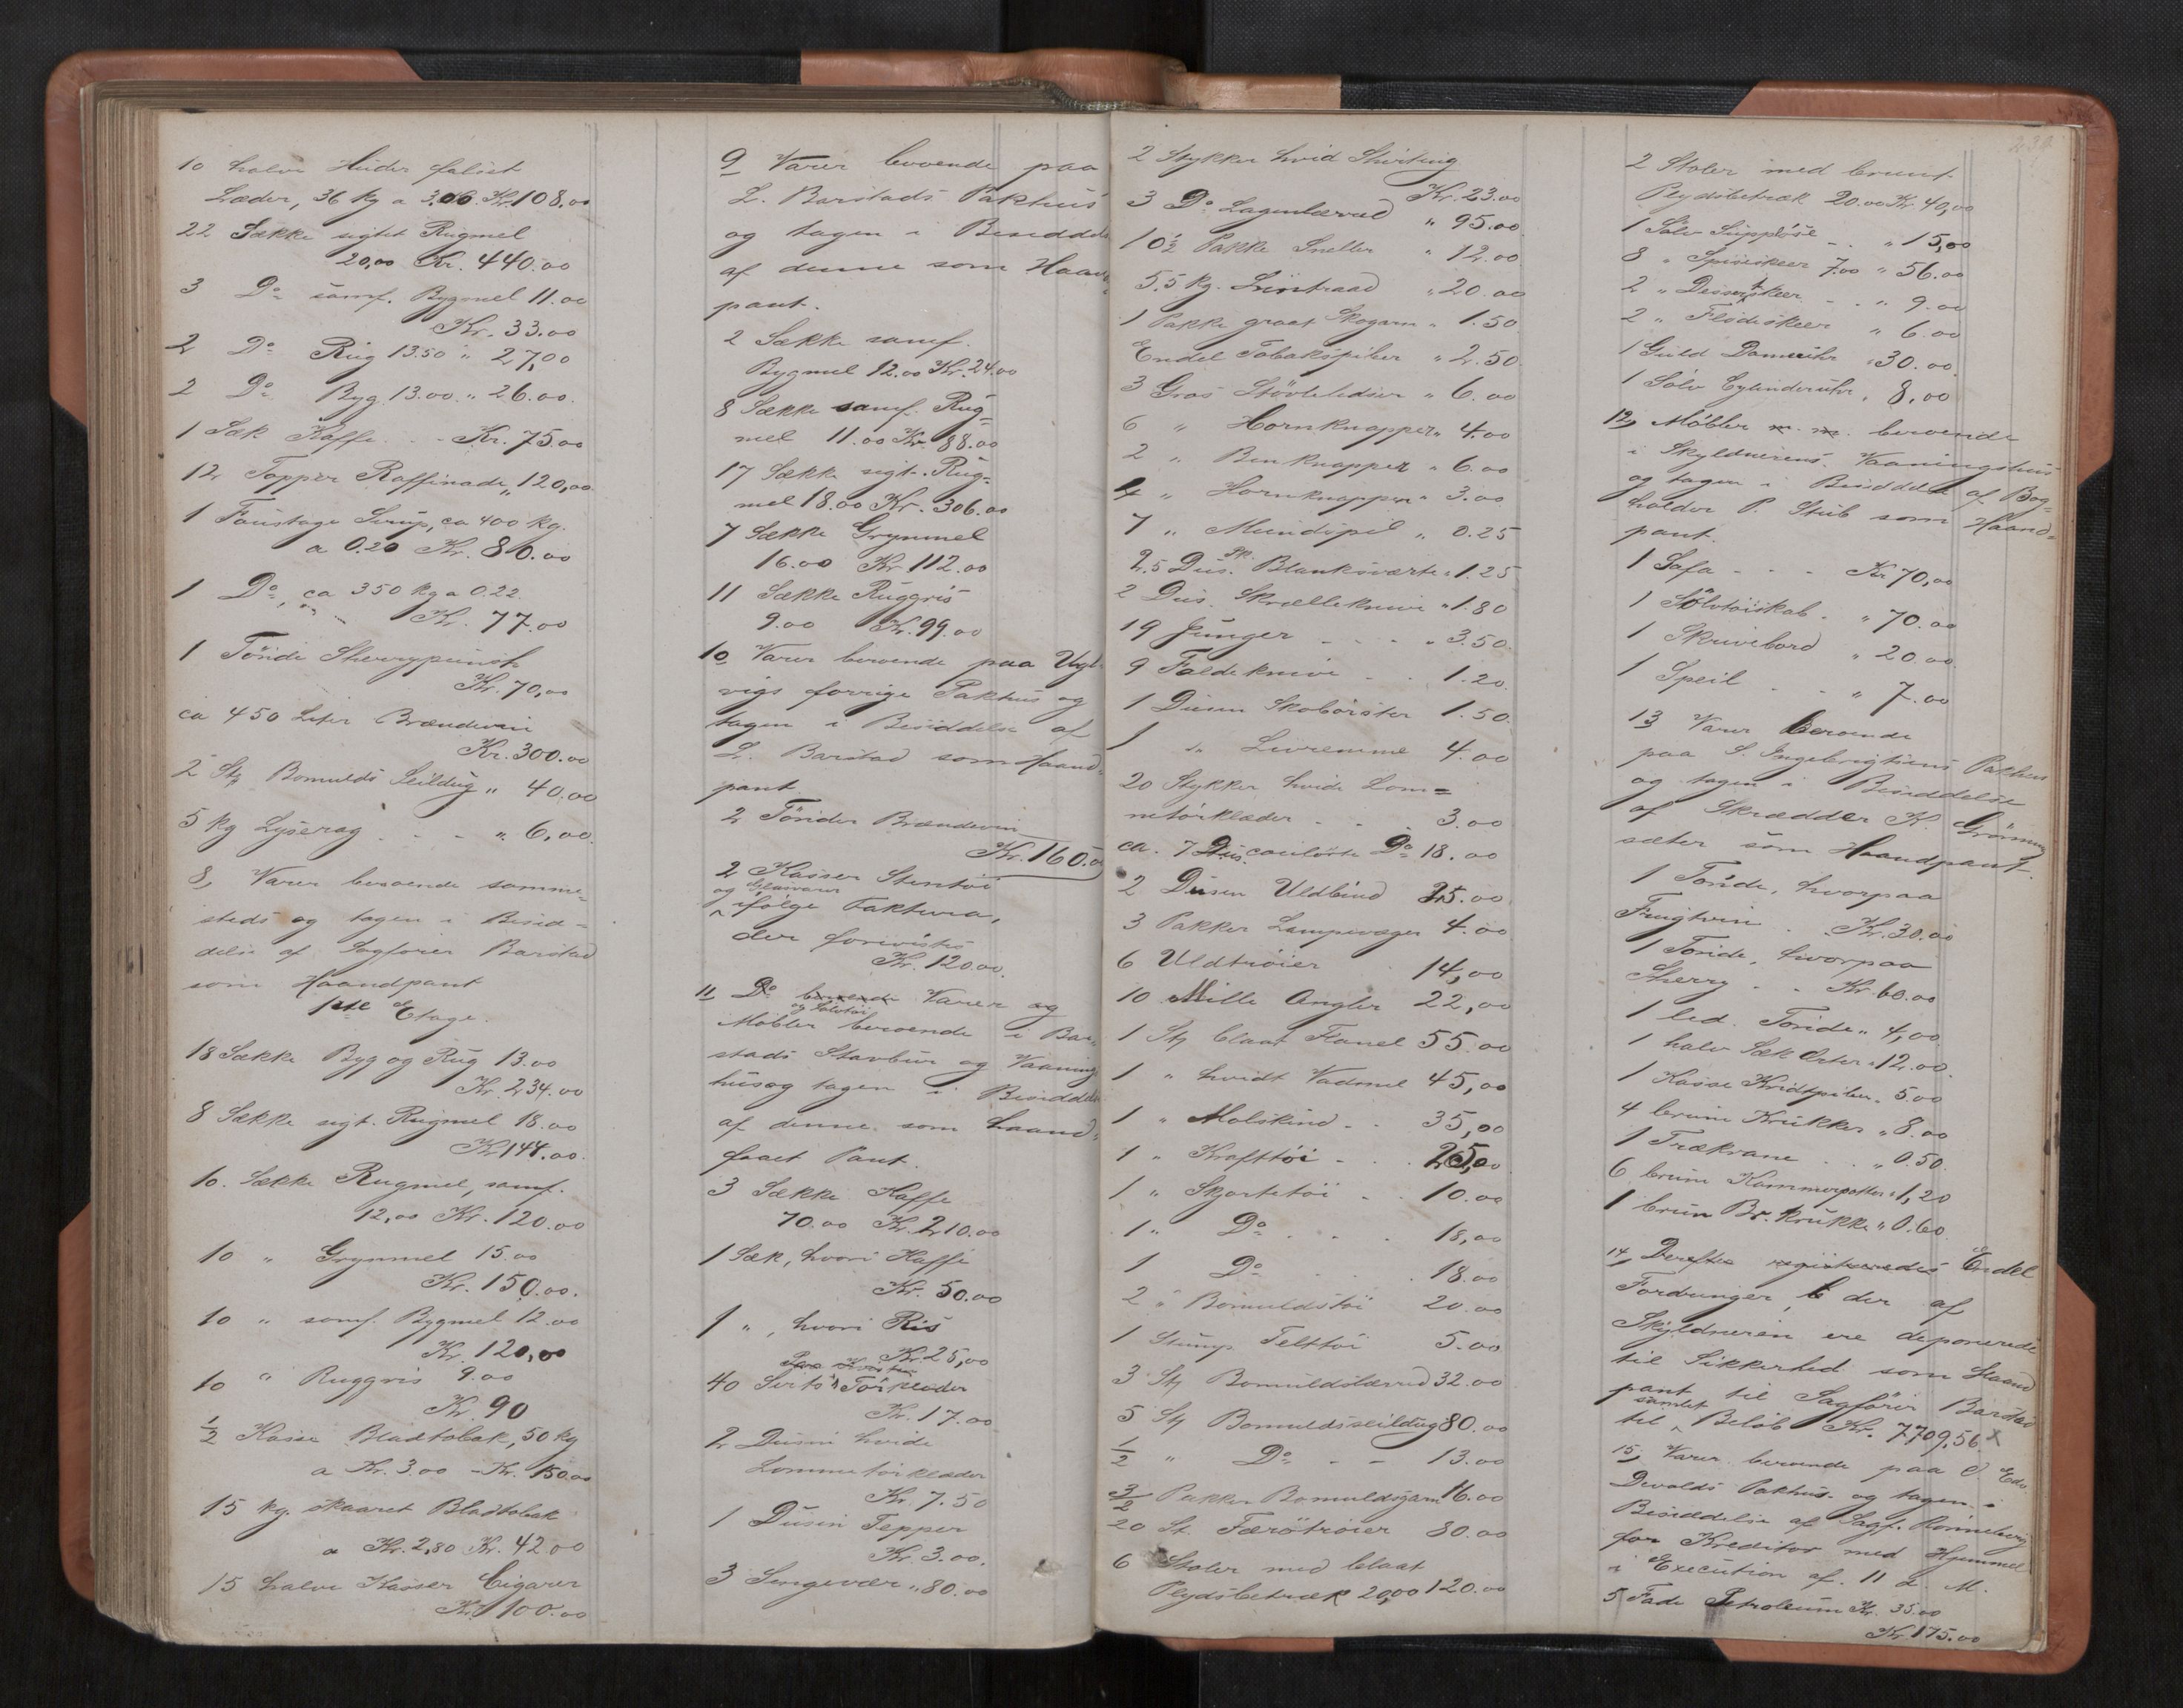 10 halve Huder falset
Læder, 36 kg a 3.00. Kr. 108.00
22 Sække sigtet Rugmel
20,00 Kr. 440.00
3 Do samf. Bygmel 11.00
Kr. 33.00
2 Do Rug 13.50 " 27,00
2 Do Byg 13.00 " 26.00.
1 Sæk Kaffe . . - Kr. 75.00
12 Topper Raffinade " 120,00
1 Foustage Sirup, ca 400 kg.
a 0.20 Kr. 80.00
1 Do, ca 350 kg a 0.22.
Kr. 77.00
1 Tönde Sherrypunch
Kr. 70,00
ca 450 Liter Brændevin
Kr. 300.00
2 Stk Bomulds Seildug " 40.00
5 kg Lyserag . . - " 6,00.
8, Varer beroende samme=
steds og tagen i Besid=
delse af Sagförer Barstad
som Haandpant
1ste Etage.
18 Sække Byg og Rug 13.00
Kr. 234.00
8 Sække sigt. Rugmel 18.00
Kr 144.00.
10. Sække Rugmel, samf.
12,00 Kr. 120.00
10 " Grynmel 15.00
Kr. 150.00.
10 " samf. Bygmel 12.00
Kr. 120,00
10 " Ruggris 9.00
Kr. 90
1/2 Kasse Bladtobak, 50 kg
a Kr. 3.00 - Kr. 150.00
15 kg. skaaret Bladtobak
a Kr. 2,80 Kr. 42.00
15 halve Kasser Cigarer
Kr. 100.00
9 Varer beroende paa
L. Barstads Pakhus
og tagen i Besiddels
af denne som Haand=
pant.
2 Sække samf.
Bygmel 12.00 Kr. 24.00
8 Sække samf. Rug=
mel 11.00 Kr. 88.00
17 Sække sigt. Rug=
mel 18.00 Kr. 306.00
7 Sække Grynmel
16.00 Kr 112.00
11 Sække Ruggris
9.00 Kr. 99.00
10 Varer beroende paa Ugl
vigs forrige Pakhus og
tagen i Besiddelse af
L. Barstad som Haand=
pant.
2 Tönder Brændevin
Kr. 160.00
2 Kasser Stentöi
og Glasvarer
ifölge Faktura,
der forevistes
Kr. 120.00.
11 Do beroende Varer og
og Sölvtöi
Möbler beroende i Bar=
stads Stavbur og Vaanings
hus og tagen i Besiddelse
af denne som haand=
faaet Pant.
3 Sække Kaffe
70.00 Kr. 210.00
1 Sæk, hvori Kaffe
Kr. 50.00
1 ", hvori Ris
Kr. 25,00
40 Sirts Törklæder
Kr. 17.00
2 Dusin hvide
Lommetörklæder
Kr. 7.50
1 Dusin Tepper
Kr. 3.00.
3 Sengevær " 80.00
2 Stykker hvid Shirting
Kr. 23.00
3 Do Lagenlærred " 95.00
10 1/2 Pakke Sneller " 12.00
5,5 kg. Snörtraad " 20.00
1 Pakke graat Skogarn " 1.50
Endel Tobakspiber " 2.50
3 Gros Stövlelidser " 6.00
6 " Hornknapper " 4.00
2 " Benknapper " 6.00
4 " Hornknapper " 3.00
7 " Mundspil " 0.25
2.5 Dus. Blanksværte " 1.25
2 Dus. Skrælleknive " 1.80
19 Junger - - - " 3.50
9 Foldeknive - . . 1.20
1 Dusin Skobörster 1.50
1 " Livremme 4.00
20 Stykker hvide Lom=
metörklæder - . . 3.00
ca. 7 Dus. coulörte Do 18.00
2 Dusin Uldbind 25.00
3 Pakker Lampevæger 4.00
6 Uldtröier . 14,00
10 Mille Angler 22,00
1 Stk blaat Flanel 55.00
1 " hvidt Vadmel 45,00
1 " Molskind - . 35,00
1 " Krafttöi - . . 25,00
1 " Skjortetöi - . 10.00
1 " Do . . . 18,00
1 Do - . . 18.00
2 " Bomuldstöi 20.00
1 Stump Telttöi 5.00
3 Stk Bomuldslærred 32.00
5 Stk Bomuldsseildug 80.00
1/2 " Do - - 13.00
3/2 Pakker Bomuldsgarn 16.00
20 St. Færötröier 80.00
6 Stoler med blaat
Plydsbetræk 20,00 120.00
2 Stoler med brunt
Plydsbetræk 20.00 Kr. 40,00
1 Sölv Suppöse - . " 15,00
8 " Spiseskeer 7.00 " 56.00
2 " Dessertskeer - . " 9.00
2 " Flödeskeer " 6.00
1 Guld Dameuhr " 30.00
1 Sölv Cylinderuhr " 8.00
12, Möbler m. m. beroende
i Skyldnerens Vaaningshus
og tagen i Besiddelse af Bog=
holder P. Stub som Haand=
pant.
1 Sofa - - - Kr 70,00
1 Sölvtöiskab - " 70.00
1 Skrivebord " 20.00
1 Speil . . - " 7.00
13 Varer beroende
paa S Ingebrigtsens Pakhus
og tagen i Besiddelse
af Skrædder K. Grönning
sæter som Haandpant.
1 Tönde, hvorpaa
Frugtvin . Kr. 30.00
1 Tönde, hvorpaa
Sherry . . Kr. 60.00
1 led. Tönde " 4,00
1 halv Sæk Erter " 12.00.
1 Kasse Kridtpiber " 5.00
4 brune Krukker " 8.00
1 Trækrane . . " 0.50
6 brune Kammerpotter " 1,20
1 brun Br. krukke " 0.60
14, Derefter registreredes Endel
Fordringer, der af
Skyldneren ere deponerede
til Sikkerhed som Haand
pant til Sagförer Barstad
samlet
til Belöb Kr. 7,709,56 x
15, Varer beroende paa O. Edv.
Devolds Pakhus og tagen i
Besiddelse af Sagf. Rönneberg
for Kreditor med Hjemmel
i Execution af 11 d. M.
5 Fade Petroleum Kr. 35.00
Kr. 175.00